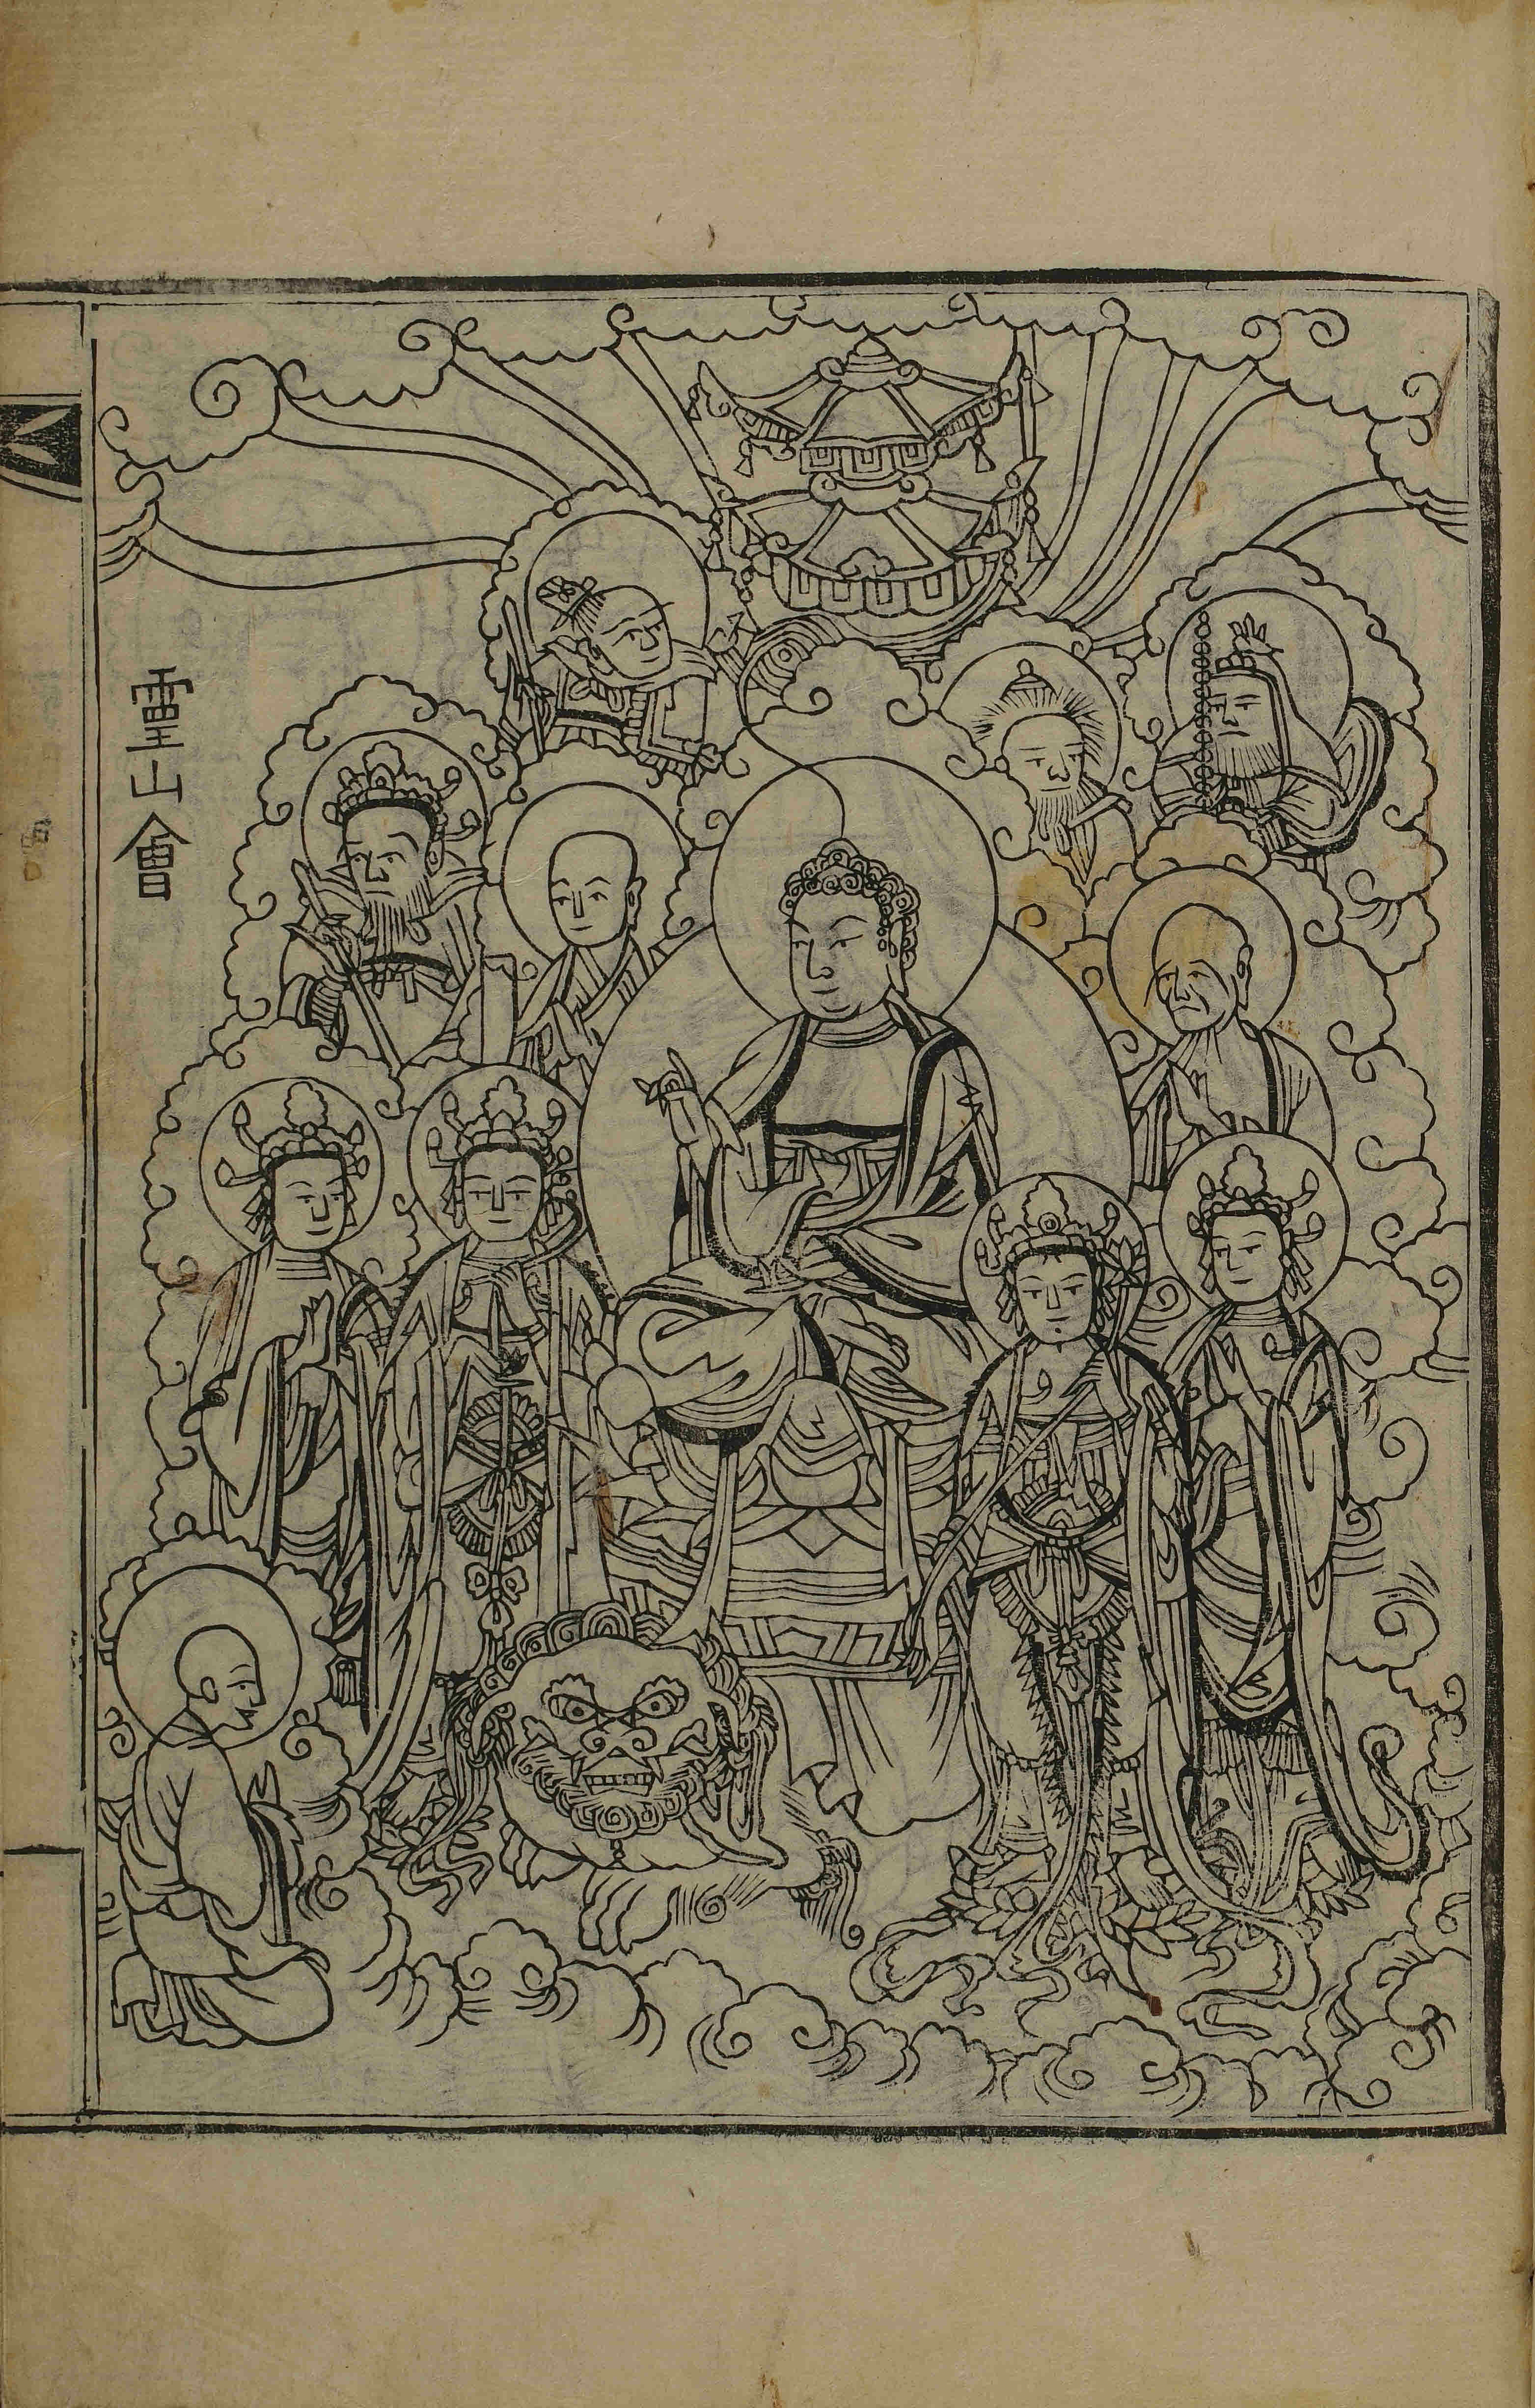 靈山會